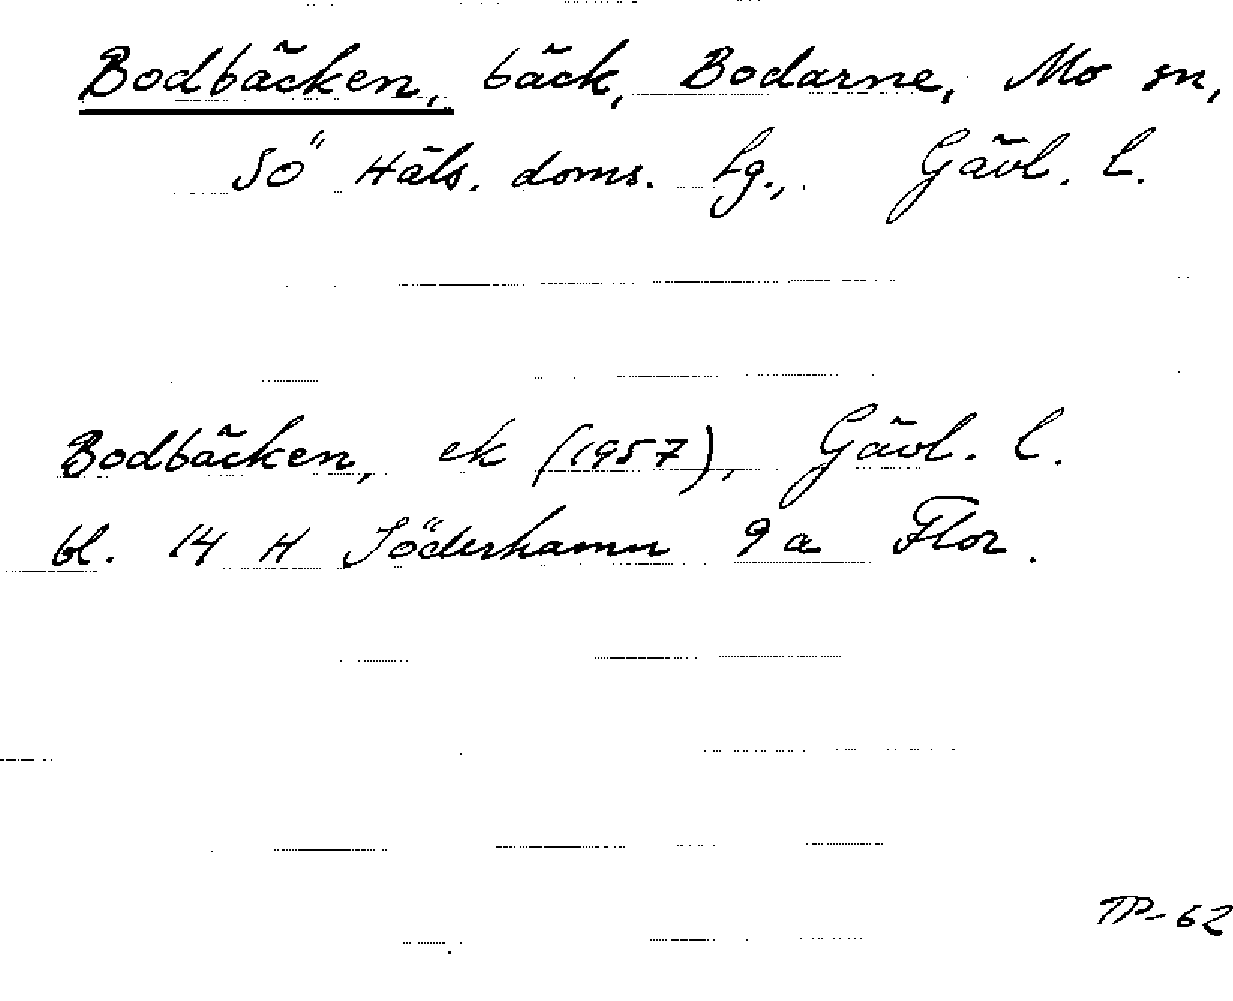 Bodbäcken, bäck, Bodarne, Mo sn,
Sö Häls. doms. lg., Gävl. l.
Bodbäcken, ek (1957), Gävl. l.
bl. 14 H Söderhamn 9 a Flor.
TP-62